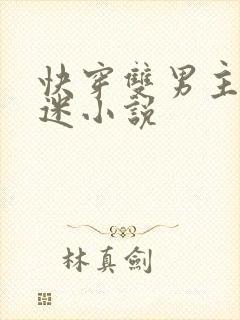 快穿雙男主
迷小説
林真劍